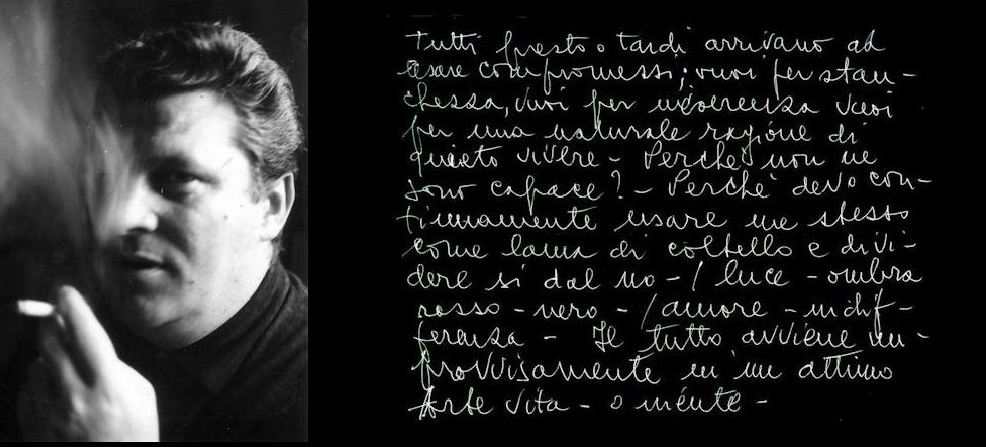 Tutti presto o tardi arrivano ad
usare compromessi; vuoi per stan-
chezza, vuoi per indifferenza vuoi
per una naturale ragione di
quieto vivere - Perché non ne
sono capace? - Perché devo con-
tinuamente usare me stesso
come lama di coltello e divi-
dere si dal no - / luce - ombra
rosso - nero - / amore - indif-
ferenza - Il tutto avviene im-
provvisamente in un attimo
Arte vita - o niente -